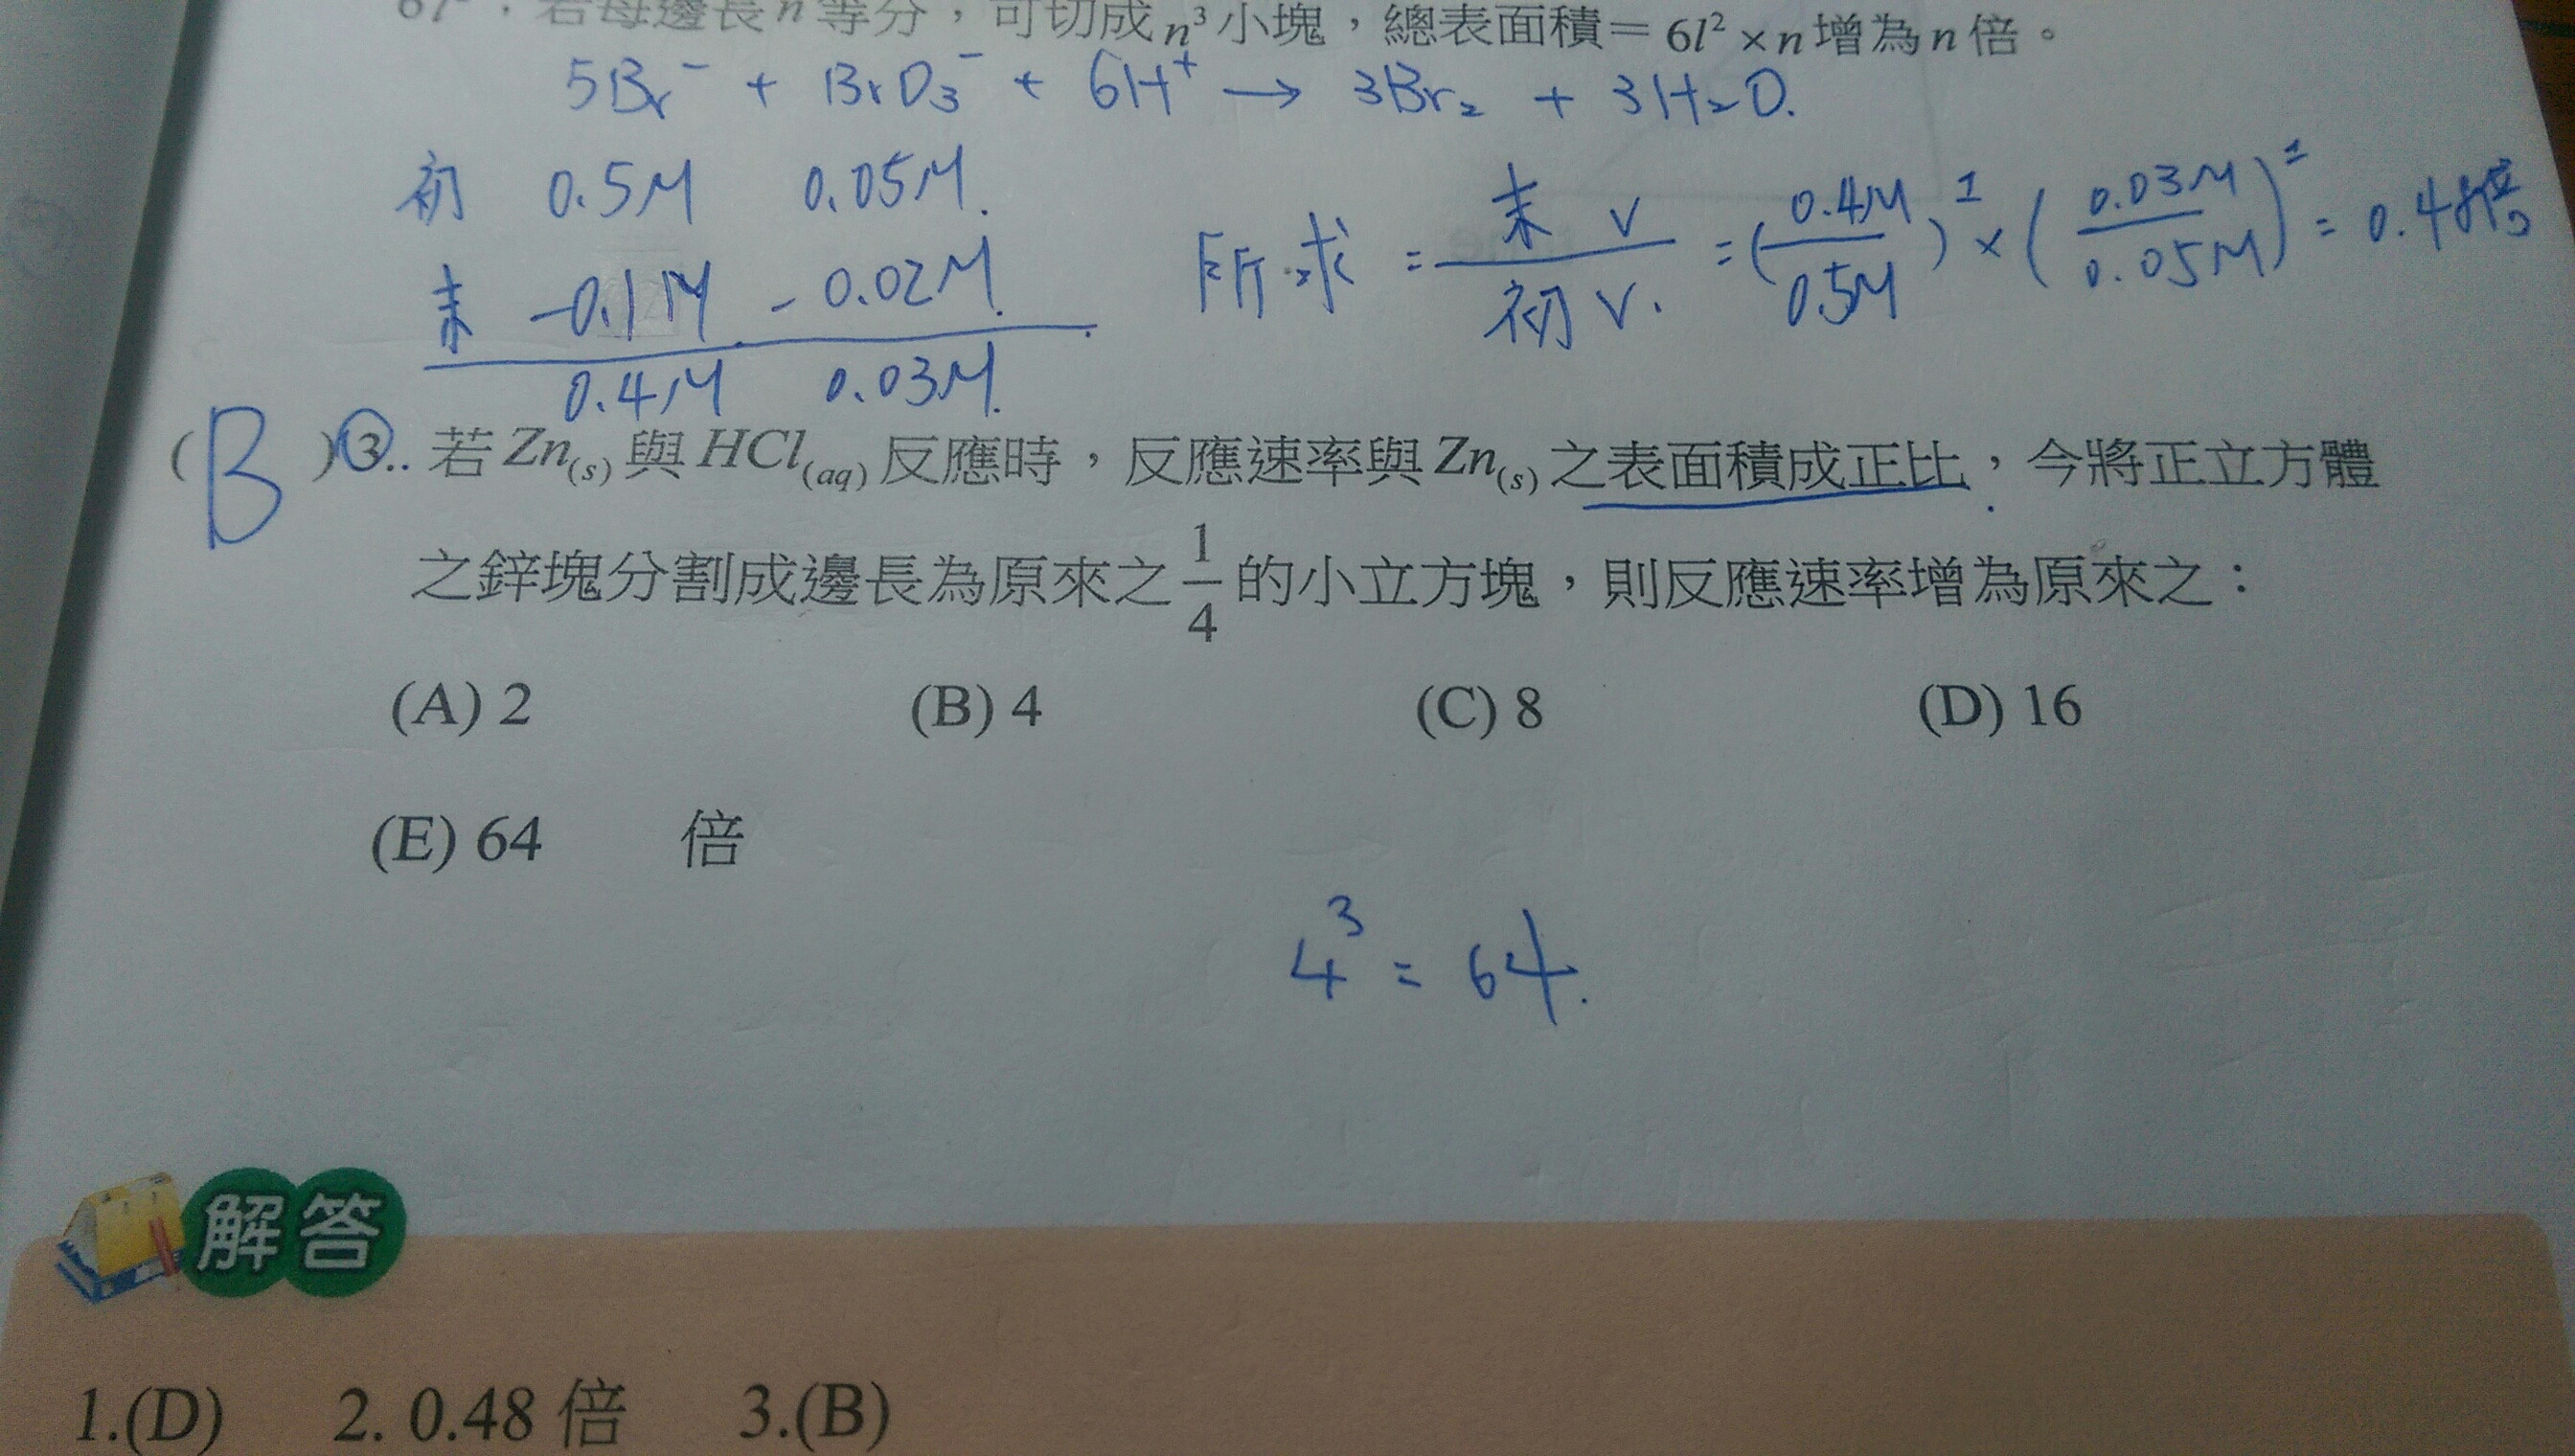 6l²，若每邊長n等分，可切成n³小塊，總表面積＝6l²×n增為n倍。
5Br⁻ + BrO₃⁻ + 6H⁺ → 3Br₂ + 3H₂O.
初 0.5M 0.05M.
末 -0.1M -0.02M.
0.4M 0.03M.
所求 = 末 V / 初 V. = (0.4M / 0.5M)¹ × (0.03M / 0.05M)¹ = 0.48倍
( B )③.. 若Zn(s)與HCl(aq)反應時，反應速率與Zn(s)之表面積成正比，今將正立方體
之鋅塊分割成邊長為原來之1/4的小立方塊，則反應速率增為原來之：
(A) 2 (B) 4 (C) 8 (D) 16
(E) 64 倍
4³ = 64.
解答
1.(D) 2. 0.48 倍 3.(B)